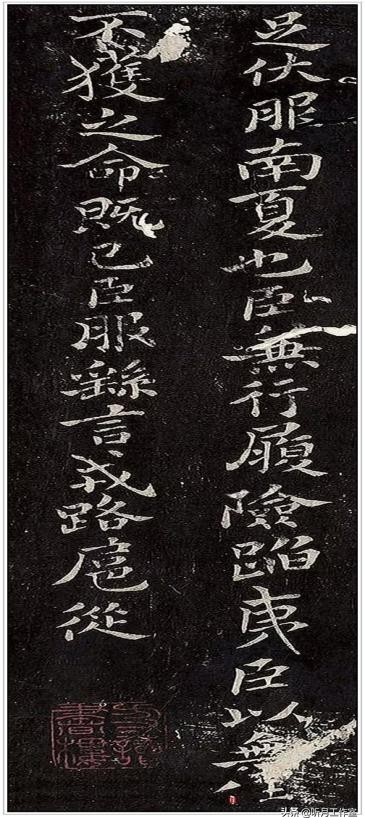 足伏服南夏也臣無行履險蹈夷臣以無任
不獲之命既已臣服繇言戎路扈從
头条 @听月工作室